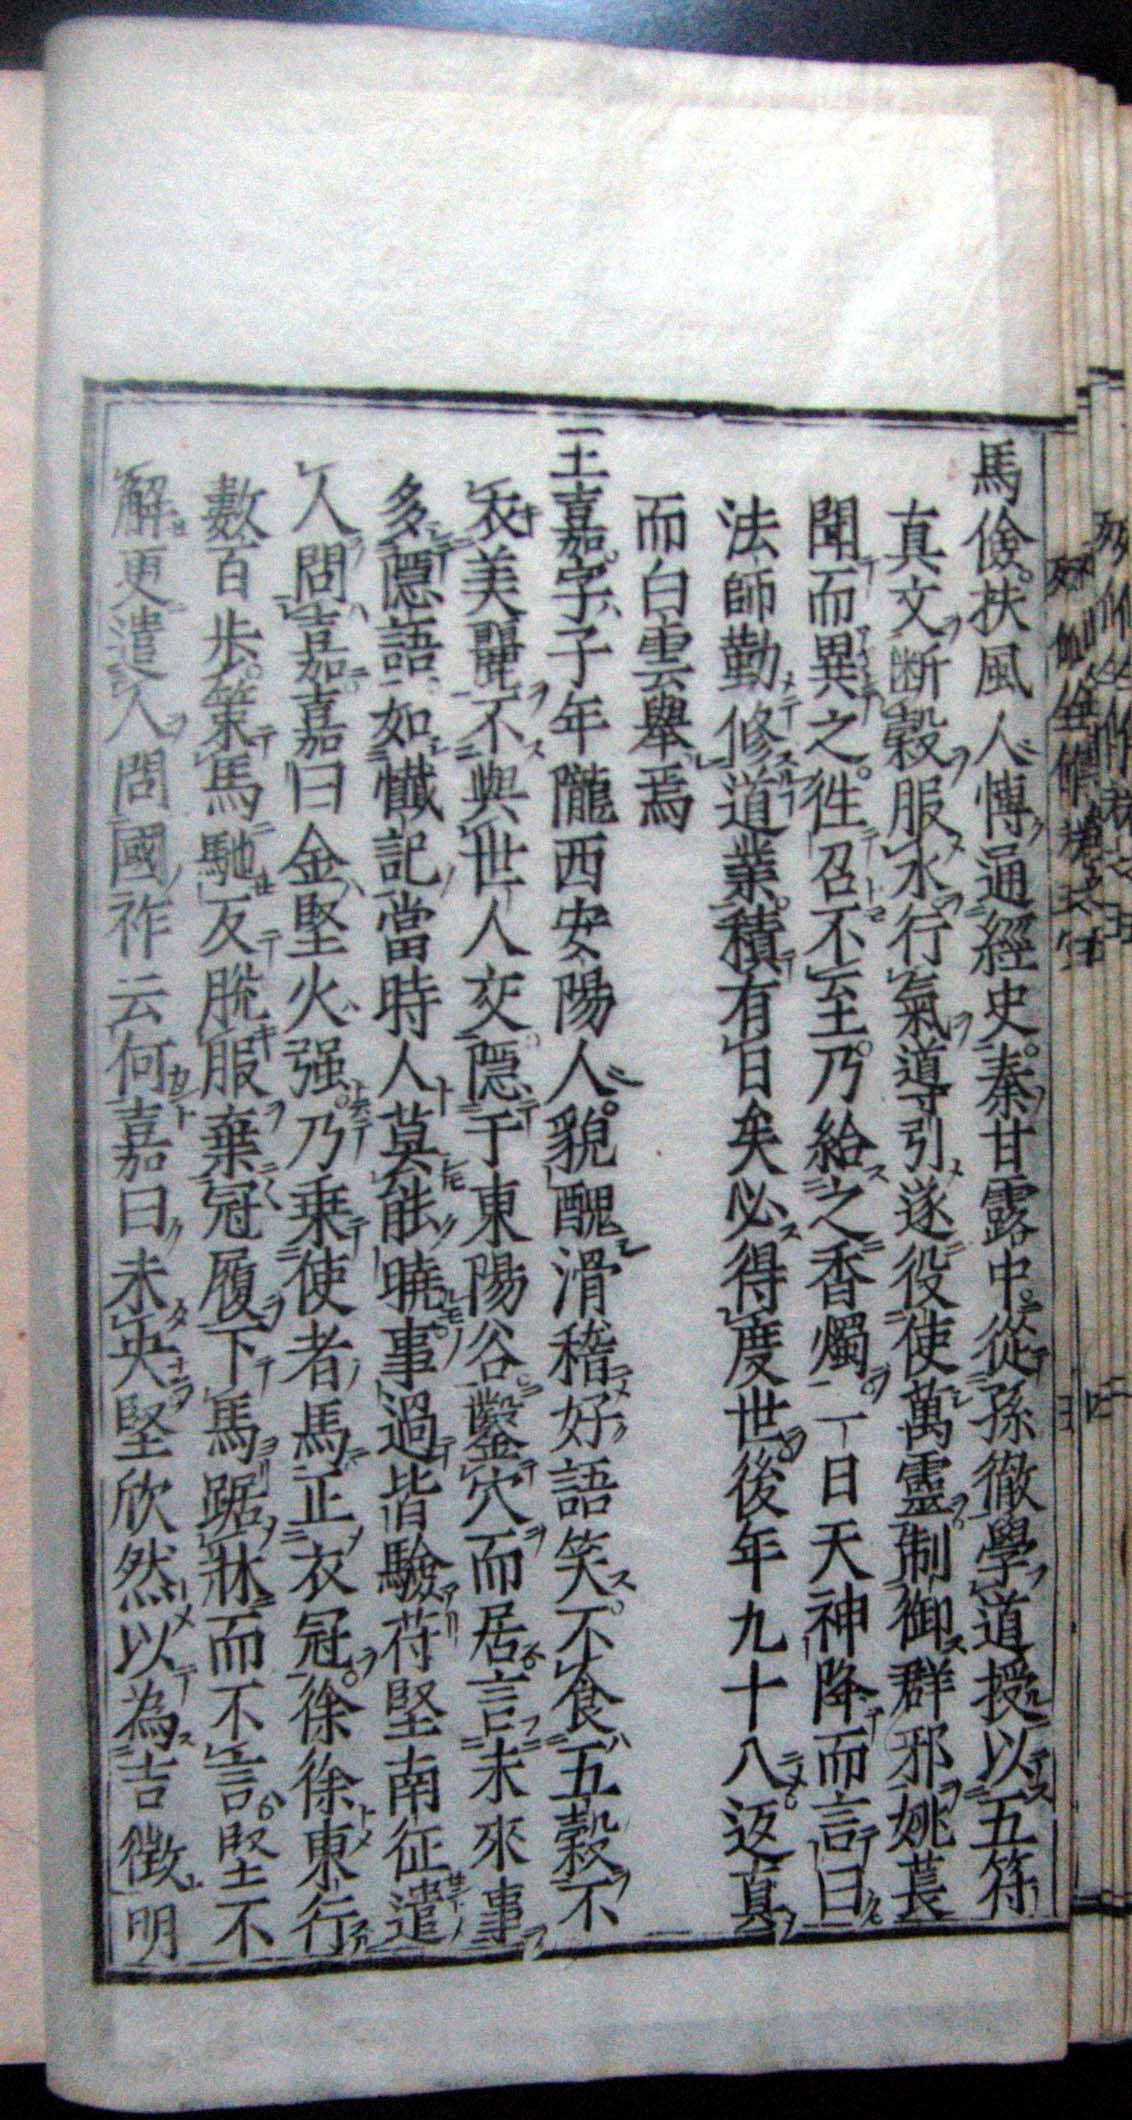 馬儉扶風人博通經史秦甘露中從孫徹學道授以五符
真文断穀服水行氣導引遂役使萬靈制御群邪姚萇
聞而異之徃召不至乃給之香燭一日天神降而言曰
法師勤修道業積有日矣必得度世後年九十八返真
而白雲舉焉
王嘉字子年隴西安陽人貌醜滑稽好語笑不食五穀不
衣美麗不與世人交隱于東陽谷鑿穴而居言未來事
多隱語如懺記當時人莫能曉事過皆驗苻堅南征遣
人問嘉嘉曰金堅火强乃乗使者馬正衣冠徐徐東行
數百歩策馬馳反脱服棄冠履下馬踞牀而不言堅不
解更遣人問國祚云何嘉曰未央堅欣然以為吉徴明